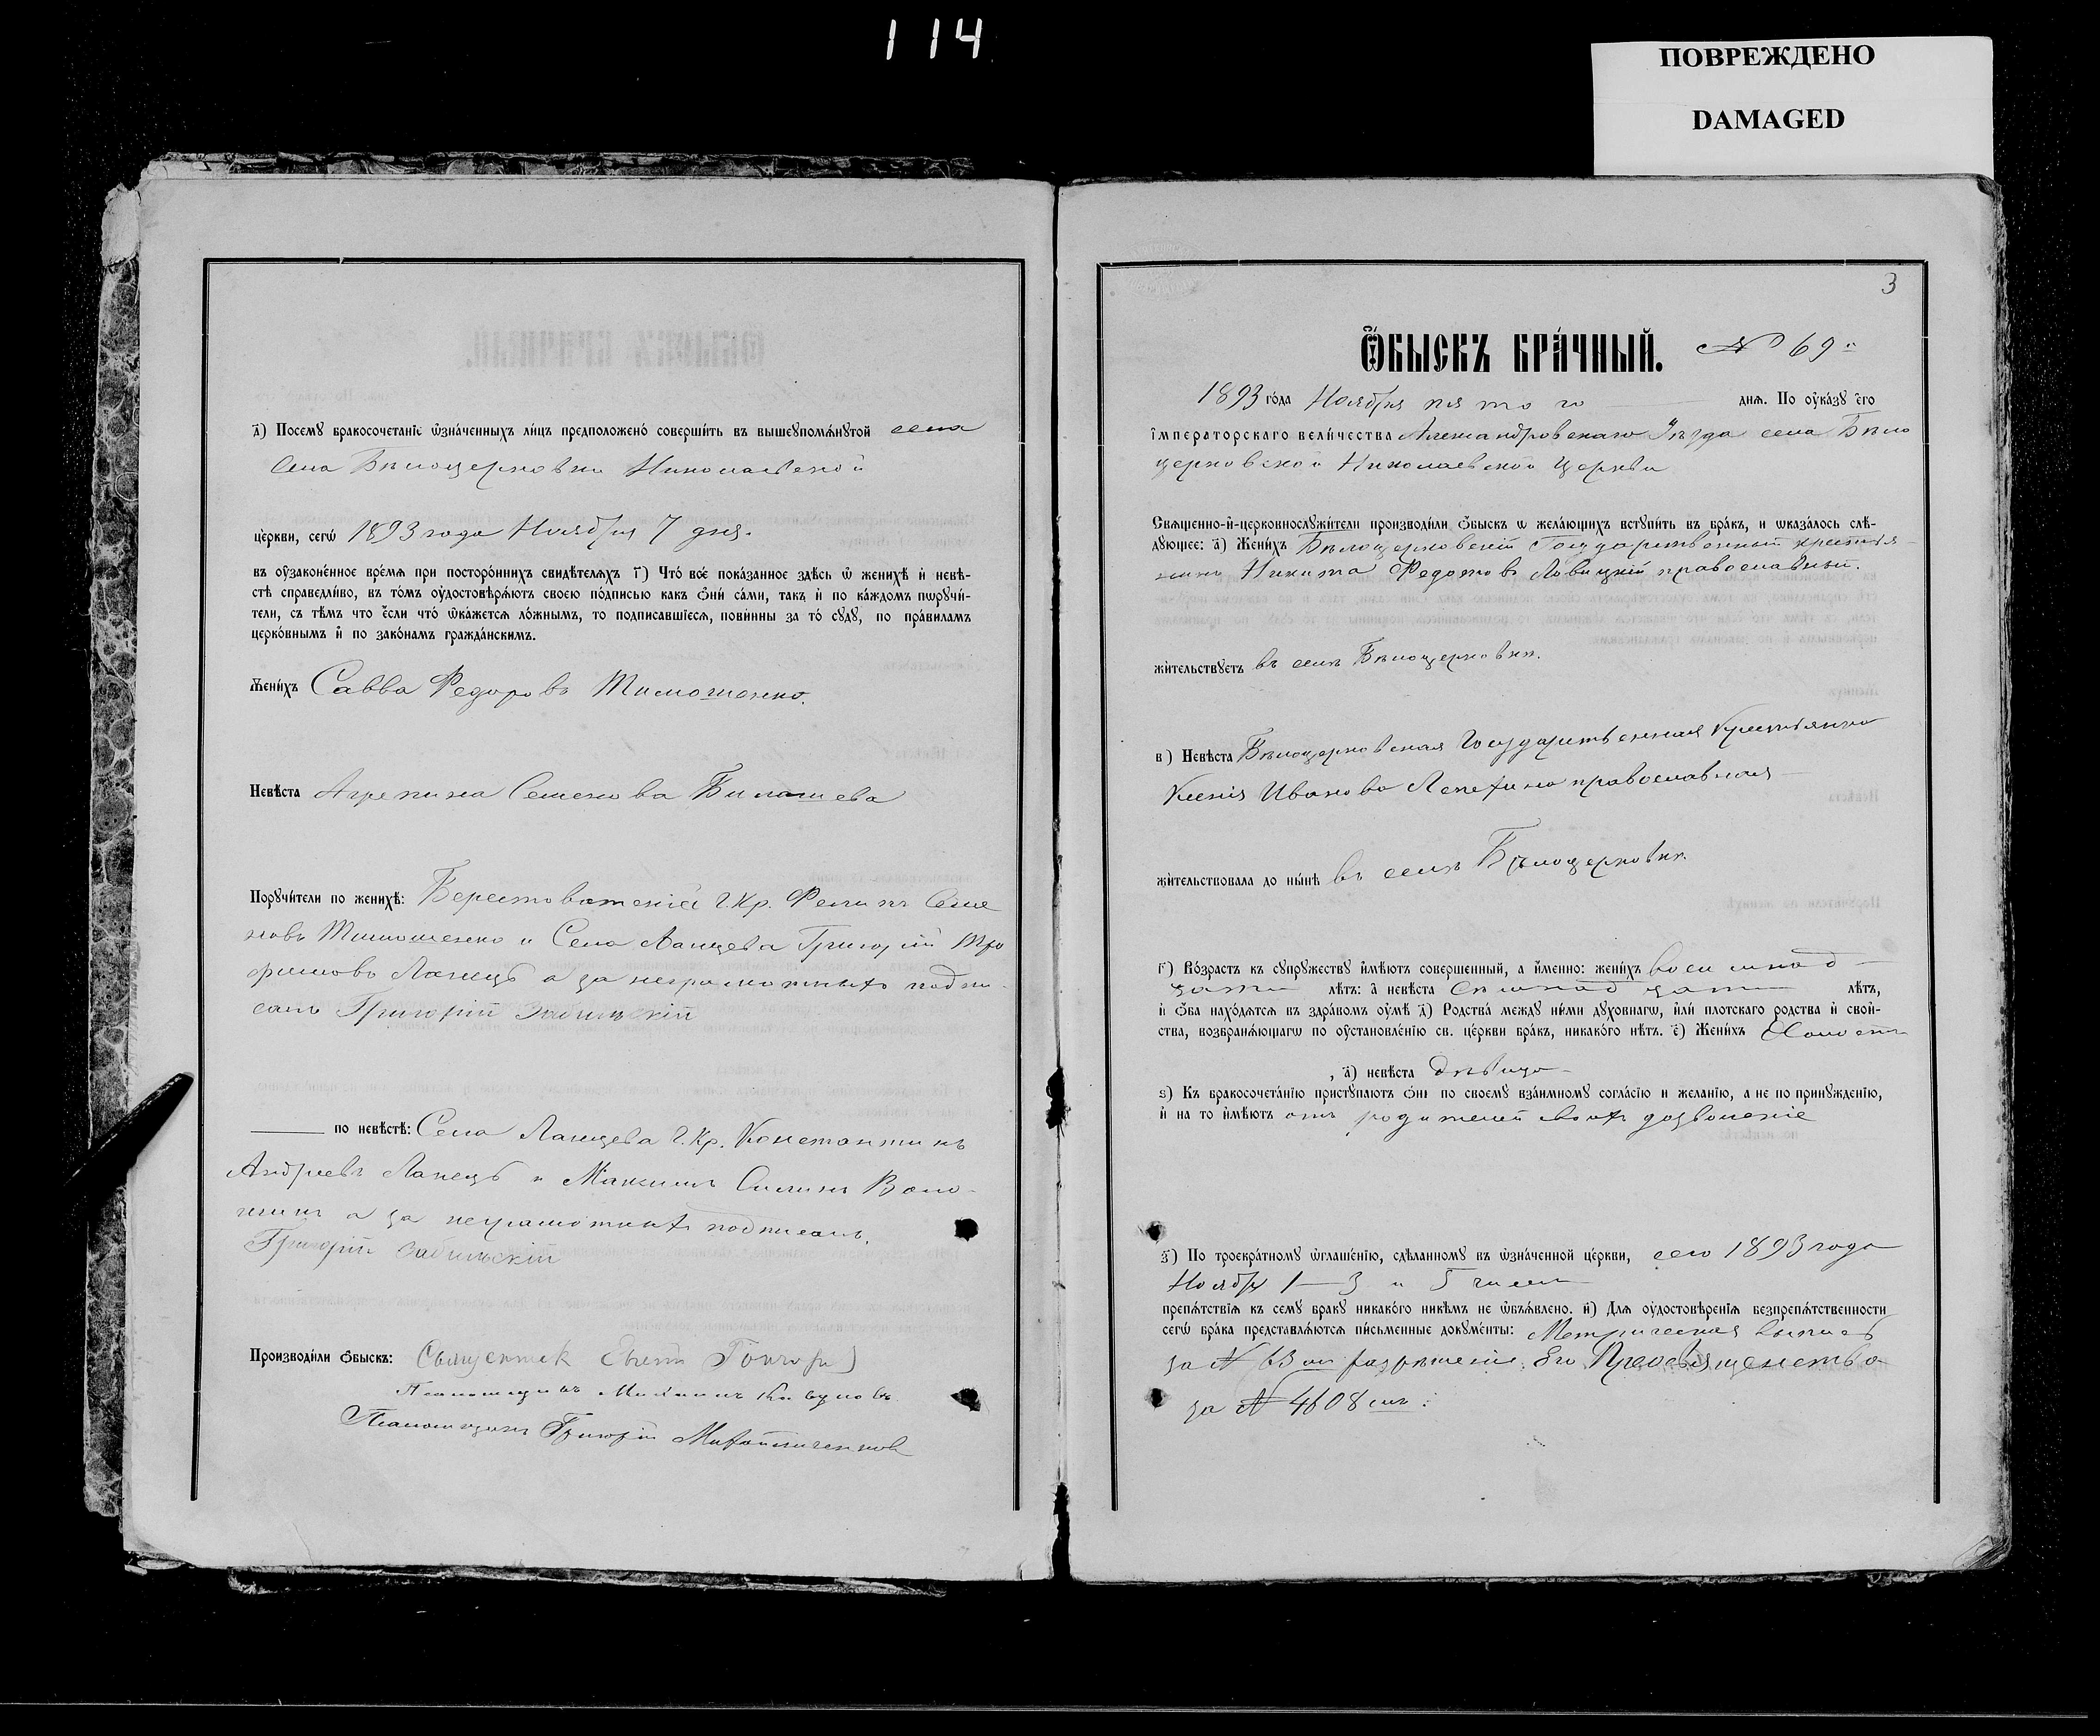 114
ПОВРЕЖДЕНО
DAMAGED
д҃) Посемꙋ бракосочетанїе ѡзна́ченныхъ ли́цъ предположено́ соверши́ть въ вышеꙋпомѧ́нꙋтой села
Села Бѣлоцерковки Николаевской
це́ркви, сегѡ̀ 1893 года Ноября 7 дня.
въ оу҆законе́нное вре́мѧ при посторо́ннихъ свидѣ́телѧхъ г҃) Что́ все́ пока́занное здѣ́сь ѡ҆ женихѣ̀ и҆ невѣ́-
стѣ справедли́во, въ то́мъ оу҆достовѣрѧ́ютъ своею по́дписью какъ ѻ҆нѝ са́ми, такъ и҆ по ка́ждомъ порꙋчи́-
тели, съ тѣ́мъ что е҆́сли что́ ѡ҆ка́жетсѧ ло́жнымъ, то подписавшїесѧ, пови́нны за то́ сꙋдꙋ̀, по пра́виламъ
церко́внымъ и҆ по зако́намъ гражда́нскимъ.
Жени́хъ Савва Федоровъ Тимошенко.
Невѣ́ста Агрепина Семенова Билашева
Порꙋчи́тели по женихѣ̀: Берестоватский Г. Кр. Филипъ Семе
новъ Тимошенко и Села Ланцева Григорій Тро
фимовъ Ланецъ а за неграмотныхъ подпи-
салъ Григорій Забильскій
по невѣ́стѣ: Села Ланцева Г. Кр. Константинъ
Андреевъ Ланецъ и Максимъ Силинъ Воло-
шинъ а за неграмотныхъ подписалъ.
Григорій Забильскій
Производи́ли ѻ҆́быскъ: Священник Гончаров
Псаломщикъ Михаилъ
Псаломщикъ Григорій
3
Ѻ҆́БЫСКЪ БРА́ЧНЫЙ. № 69й
1893 го́да Ноября пятого днѧ. По оу҆ка́зꙋ є҆гѡ̀
і҆мператорскаго вели́чества Александровскаго Уѣзда села Бѣло
церковской Николаевской церкви
Свѧщенно-и҆-церковнослꙋжи́тели производи́ли ѻ҆́быскъ ѡ жела́ющихъ встꙋпи́ть въ бра́къ, и ѡказа́лось слѣ́-
дꙋющее: а҃) Жени́хъ Бѣлоцерковскій Государственный крестья-
нинъ Никита Федотовъ Ловицкій православный.
жи́тельствꙋетъ въ селѣ Бѣлоцерковкѣ.
в) Невѣ́ста Бѣлоцерковская Государственная Крестьянка
Ксенія Иванова Лепехина православная
жи́тельствовала до ны́нѣ въ селѣ Бѣлоцерковкѣ.
г҃) Во́зрастъ къ сꙋпрꙋжествꙋ и҆мѣ́ютъ соверше́нный, а и҆́менно: жени́хъ восемнад-
цати лѣтъ: а҆ невѣ́ста семнадцати лѣтъ,
и҆ ѻ҆́ба нахо́дѧтсѧ въ здра́вомъ оу҆мѣ̀ д҃) Родства́ междꙋ ни́ми дꙋховнагѡ, и҆лѝ плотскаго родства и҆ свой-
ства, возбранѧ́ющагѡ по оу҆становле́нїю св. це́ркви бра́къ, никако́го нѣ́тъ. е҃) Жени́хъ Холостъ
, а҃) невѣ́ста дѣвица
ѕ) Къ бракосочета́нїю приступа́ютъ ѻ҆нѝ по своемꙋ вза́имномꙋ согла́сїю и жела́нїю, а не по принꙋжде́нїю,
и҆ на то и҆мѣ́ютъ отъ родителей своихъ дозволеніе
з҃) По троекра́тномꙋ ѡ҆глаше́нїю, сдѣ́ланномꙋ въ ѡ҆зна́ченной це́ркви, сего 1893 года
Ноября 1—3 и 5 числъ
препѧ́тствїѧ къ семꙋ браку никако́го никѣ́мъ не ѡ҆б̾ѧ́влено. и҃) Длѧ оу҆достовѣ́ренїѧ безпрепѧ́тственности
сегѡ̀ бра́ка представлѧ́ютсѧ пи́сьменные докꙋме́нты: Метрическая выпись
за № 63 разрѣшеніе Его Преосвященства
за № 4608